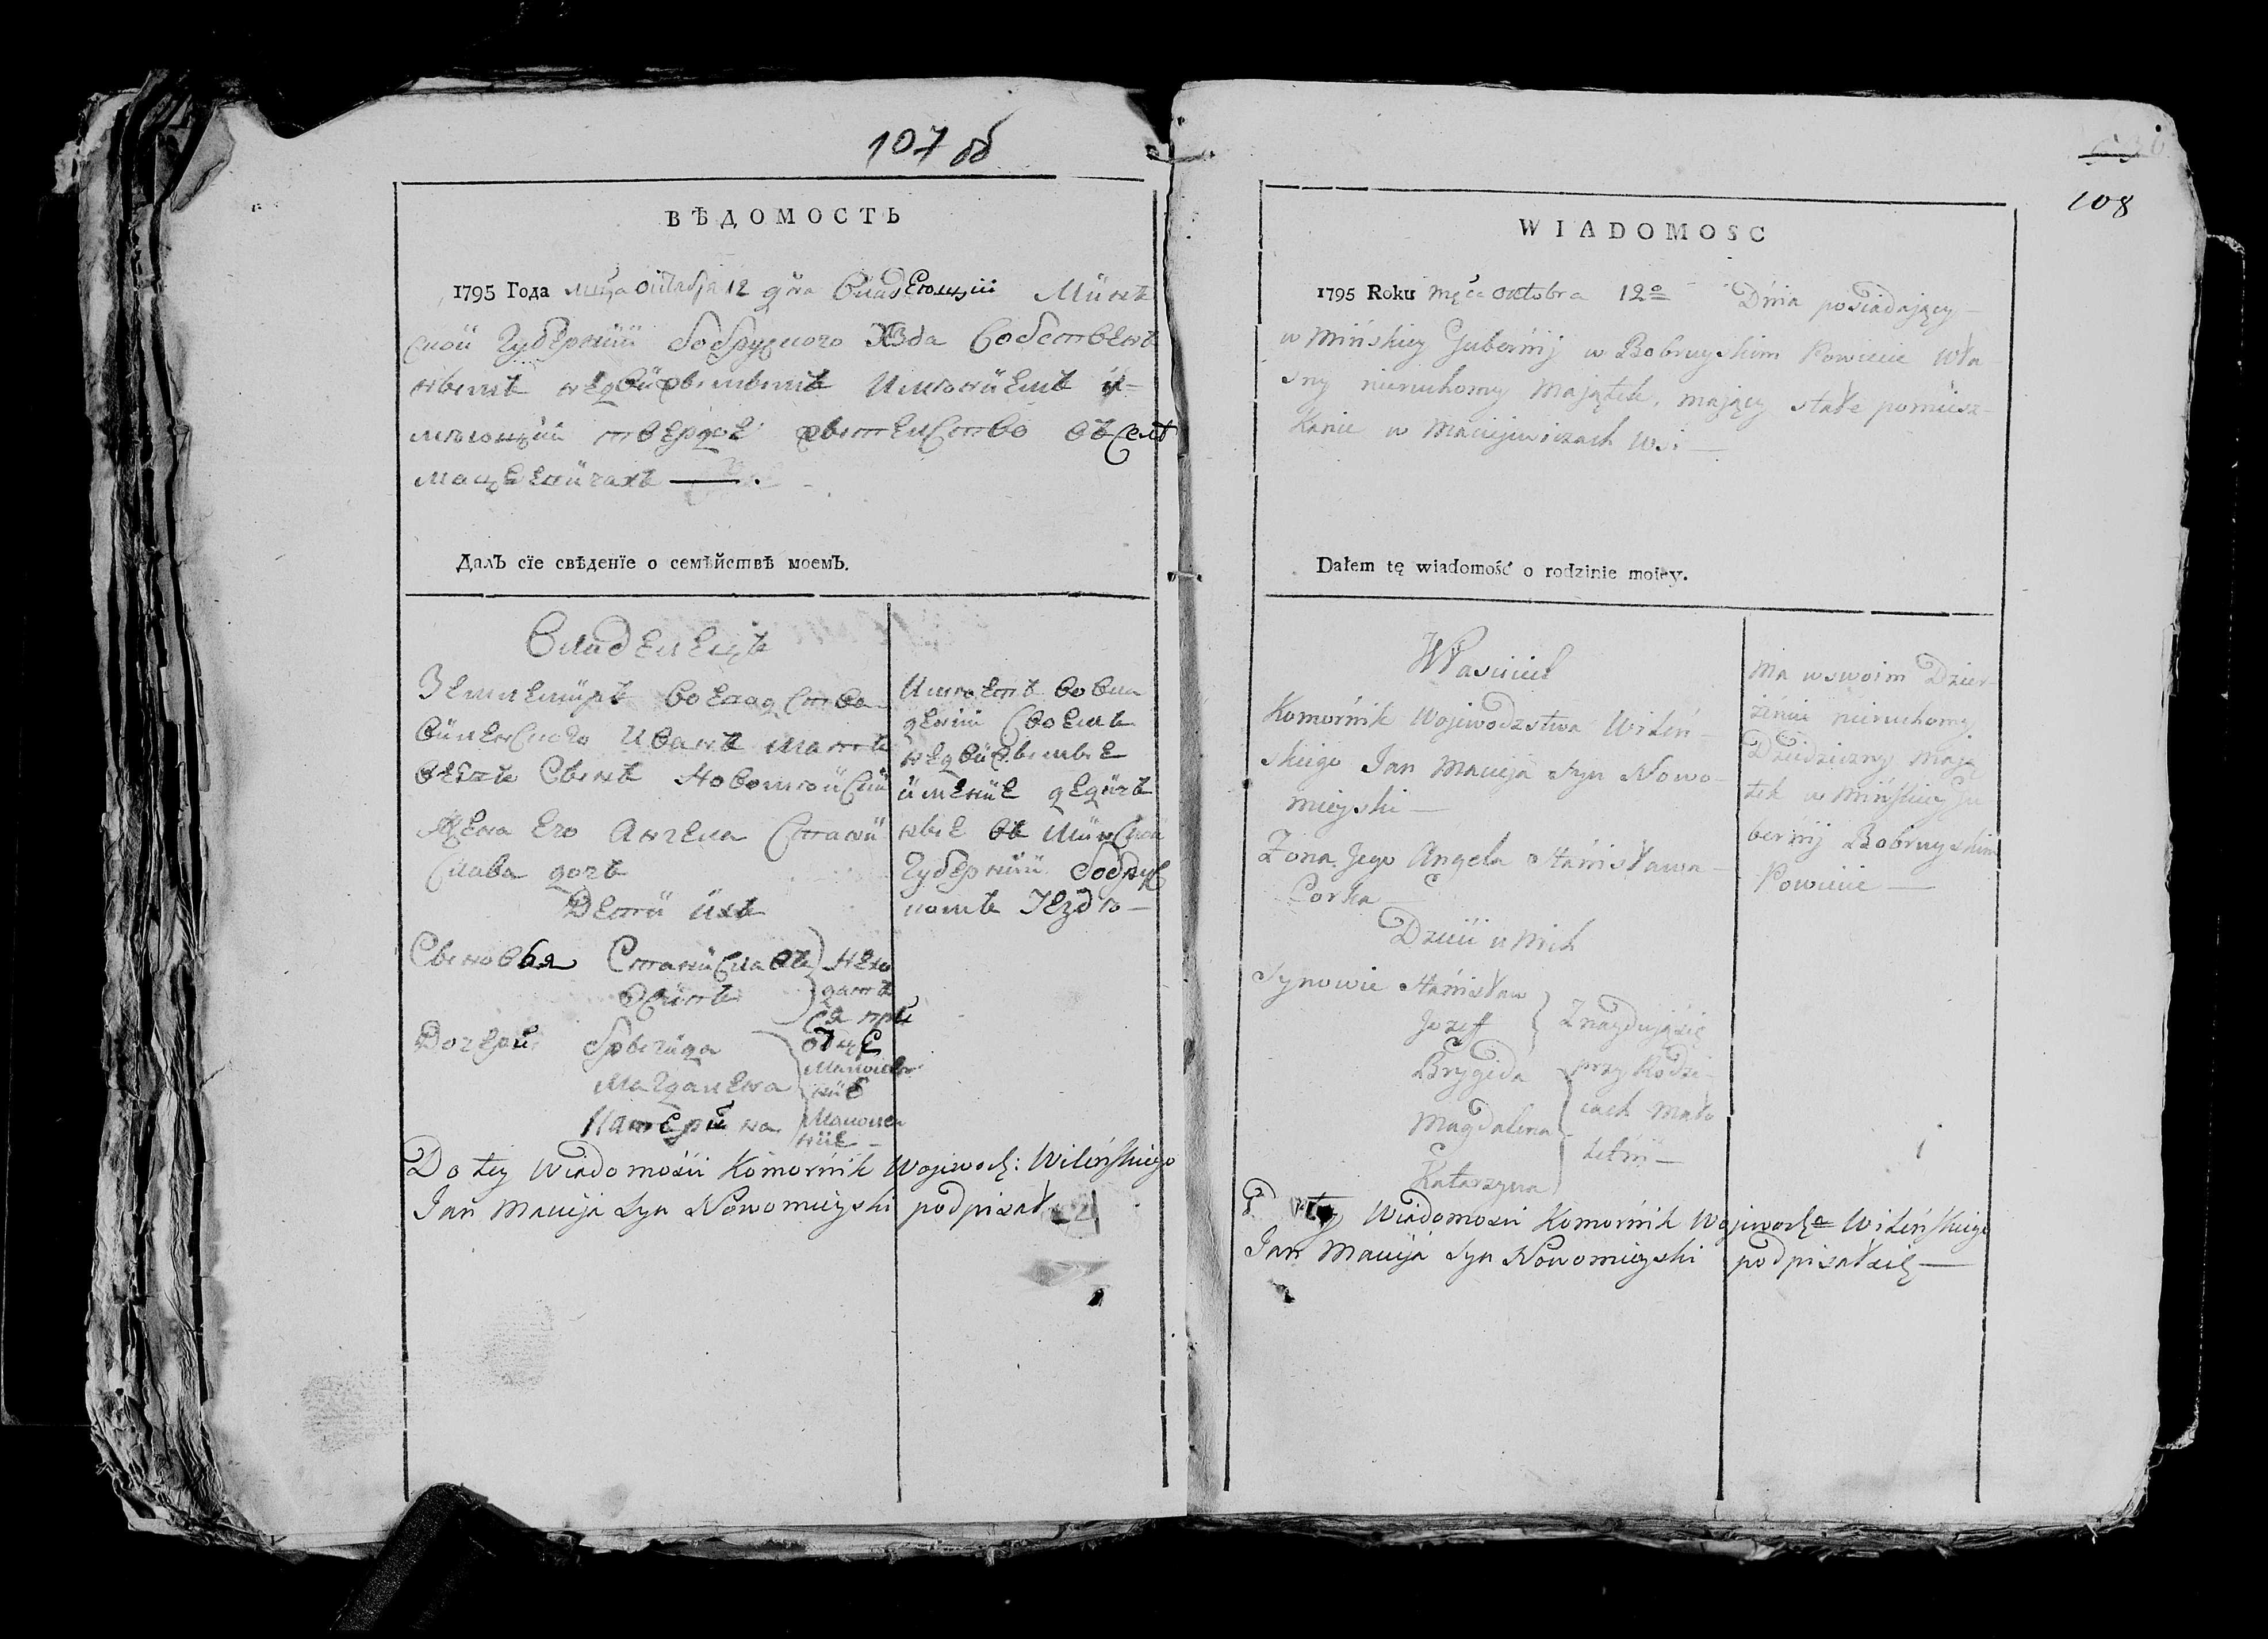 107 об
ВѢДОМОСТЬ
1795 Года мца октабря 12 дня владеющiй Минъ
ской Губернiи бобруцкого уезда Собственъ
нымъ недвижымымъ имѣнiемъ и=
мѣющiй твердое жытелство въ селѣ
Мацеевичахъ —.
ДалЪ сїе свѣденїе о семѣйствѣ моемЪ.
Владелецъ
Землемиръ воеводства
виленского Иванъ мать
вея Сынъ Новомѣйский
Жена Его Ангела Стани
слава дочъ
Дети ихъ
Сыновья Станиславъ
Осипъ
Находятся при отце
Дочери Брыгида
Магдалена
Катерина
Имѣетъ во вла
денiи своемъ
недвижымые
имение дедичъ
ные въ Минской
Губернiи бобруц
комъ уездѣ —
Do tey Wiadomości Komornik Wojewodz: Wileńskiego
Jan Macieja Syn Nowomieyski podpisał
108
WIADOMOSC
1795 Roku męca oktobra 12º Dnia posiadający
w Mińskiey Gubernij w Bobruyskim Powiecie wła
sny nieruchomy Majątek, mający stałe pomiesz-
kanie w Maciejewiczach Wsi —
Dałem tę wiadomość o rodzinie moiey.
Własciciel
Komornik Wojewodztwa Wileń-
skiego Jan Macieja Syn Nowo-
mieyski —
Żona Jego Angela Stanisława
Corka
Dzieci u Nich
Synowie Stanisław
Jozeff
Brygida
Magdalena
Katarzyna
Znaydują się
przy Rodzi-
cach Mało
letni —
Ma w swoim Dzier-
żeniu nieruchomy
Dziedziczny Mają
tek w Mińskiey Gu
bernij Bobruyskim
Powiecie —
Wiadomosci Komornik Wojewodz= Wileńskiego
Jan Macieja Syn Nowomieyski podpisał się —